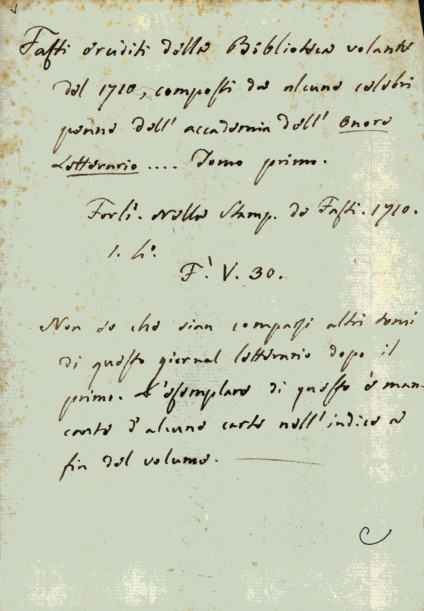 Fasti eruditi della Biblioteca volante
del 1710, composti da alcune celebri
penne dell' accademia dell' Onore
Letterario .... Tomo primo.
Forlì. Nella Stamp. de Fasti. 1710.
F. V. 30.
Non so che sian comparsi altri tomi
di questo giornal letterario dopo il
primo. L'esemplare di questo è man-
cante d'alcune carte nell'indice a
fin del volume.